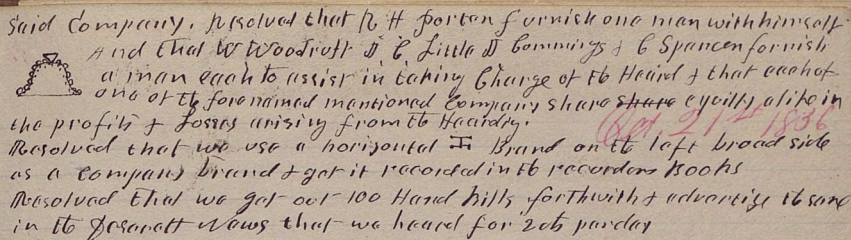 said Company. Resolved that R H Porter furnish one man with himself
And that W Woodruff D C Little D Commings & C Spencer fornish
a man each to assist in taking Charge of th Heard & that each of
one of th forenamed mantioned Company share share equilly alike in
the profits & Losses arising from th Hearding.
Oct. 21st 1886
Resolved that we use a horizontal Brand on th left broad side
as a company brand & get it recorded in th recorders Books
Resolved that we get out 100 Hand bills forthwith & advertize th same
in th Desarett News that we heard for 2cts parday